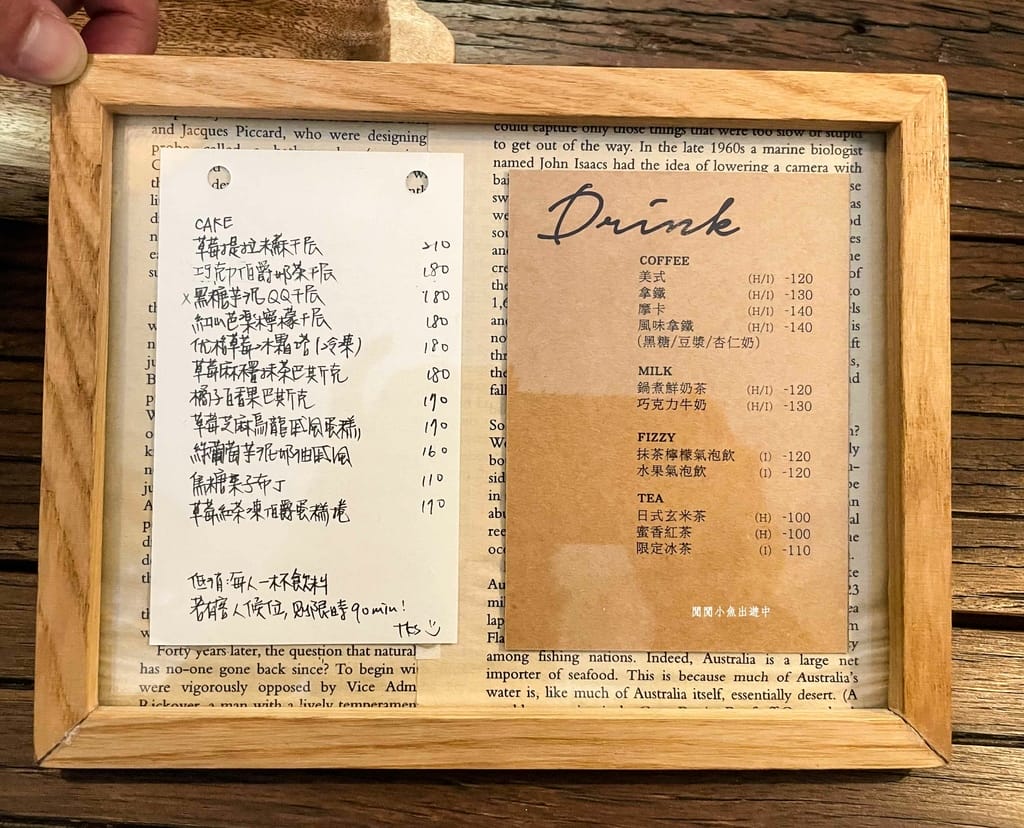 and Jacques Piccard, who were designing
CAKE
草莓提拉米蘇千层 210
巧克力伯爵奶茶千层 180
×黑糖芋泥QQ千层 180
紅心芭樂檸檬千层 180
优格草莓冰霜塔(冷藏) 180
草莓麻糬抹茶巴斯克 180
橘子百香果巴斯克 190
草莓芝麻烏龍戚風蛋糕 190
綠葡萄芋泥奶油戚風 160
焦糖栗子布丁 110
草莓紅茶凍伯爵蛋糕捲 190
低消:每人一杯飲料
若有客人候位,則限時90min!
tks
Forty years later, the question that natural
has no-one gone back since? To begin wi
were vigorously opposed by Vice Adm
Rickover, a man with a lively temperamen
could capture only those things that were too slow or stupid
to get out of the way. In the late 1960s a marine biologist
named John Isaacs had the idea of lowering a camera with
Drink
COFFEE
美式 (H/I) -120
拿鐵 (H/I) -130
摩卡 (H/I) -140
風味拿鐵 (H/I) -140
(黑糖/豆漿/杏仁奶)
MILK
鍋煮鮮奶茶 (H/I) -120
巧克力牛奶 (H/I) -130
FIZZY
抹茶檸檬氣泡飲 (I) -120
水果氣泡飲 (I) -120
TEA
日式玄米茶 (H) -100
蜜香紅茶 (H) -100
限定冰茶 (I) -110
閒閒小魚出遊中
among fishing nations. Indeed, Australia is a large net
importer of seafood. This is because much of Australia's
water is, like much of Australia itself, essentially desert. (A